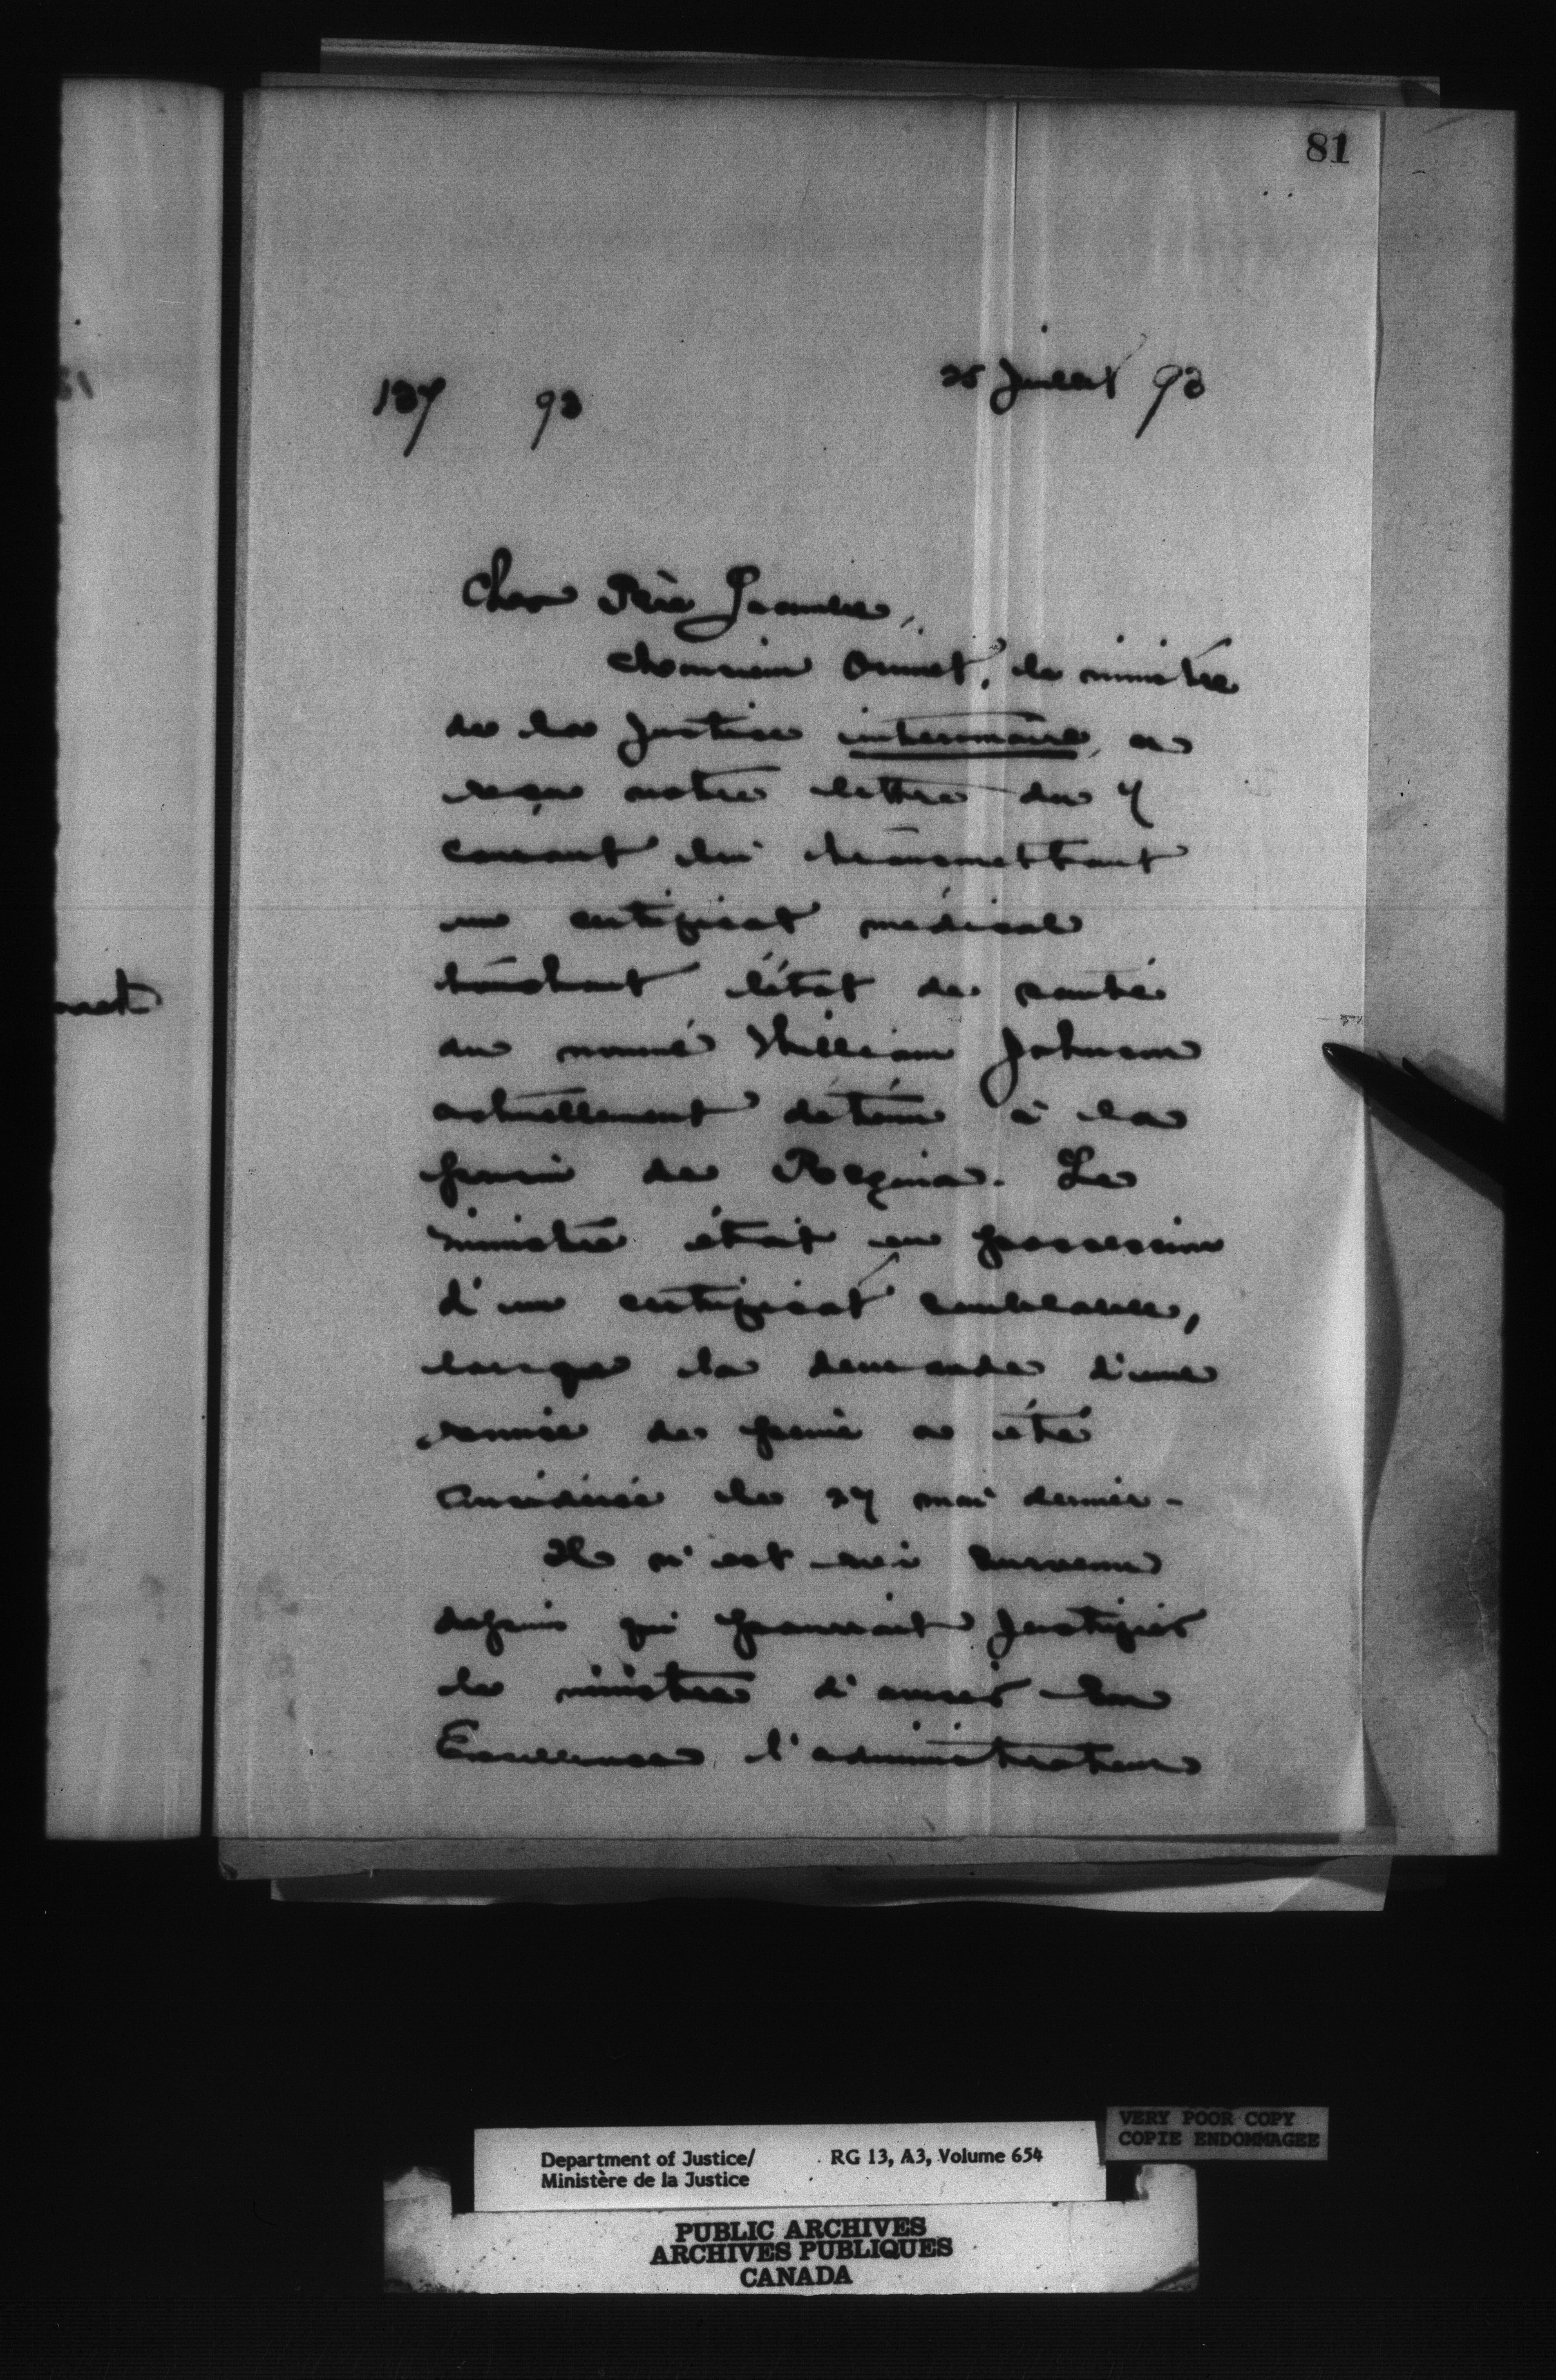 81
137 93
25 Juillet 93
Cher Père
Monsieur Ouimet, le ministre
de la Justice intérimaire, a
reçu votre lettre du 7
courant lui transmettant
un certificat médical
touchant l'état de santé
du nommé William Johnson
actuellement détenu à la
prison de Regina. Le
ministre était en possession
d'un certificat semblable,
lorsque la demande d'une
remise de peine a été
considérée le 27 mai dernier.
Il n'est rien survenu
depuis qui pourrait justifier
le ministre d'aviser Son
Excellence l'administrateur
Department of Justice/ RG 13, A3, Volume 654
Ministère de la Justice
VERY POOR COPY
COPIE ENDOMMAGEE
PUBLIC ARCHIVES
ARCHIVES PUBLIQUES
CANADA